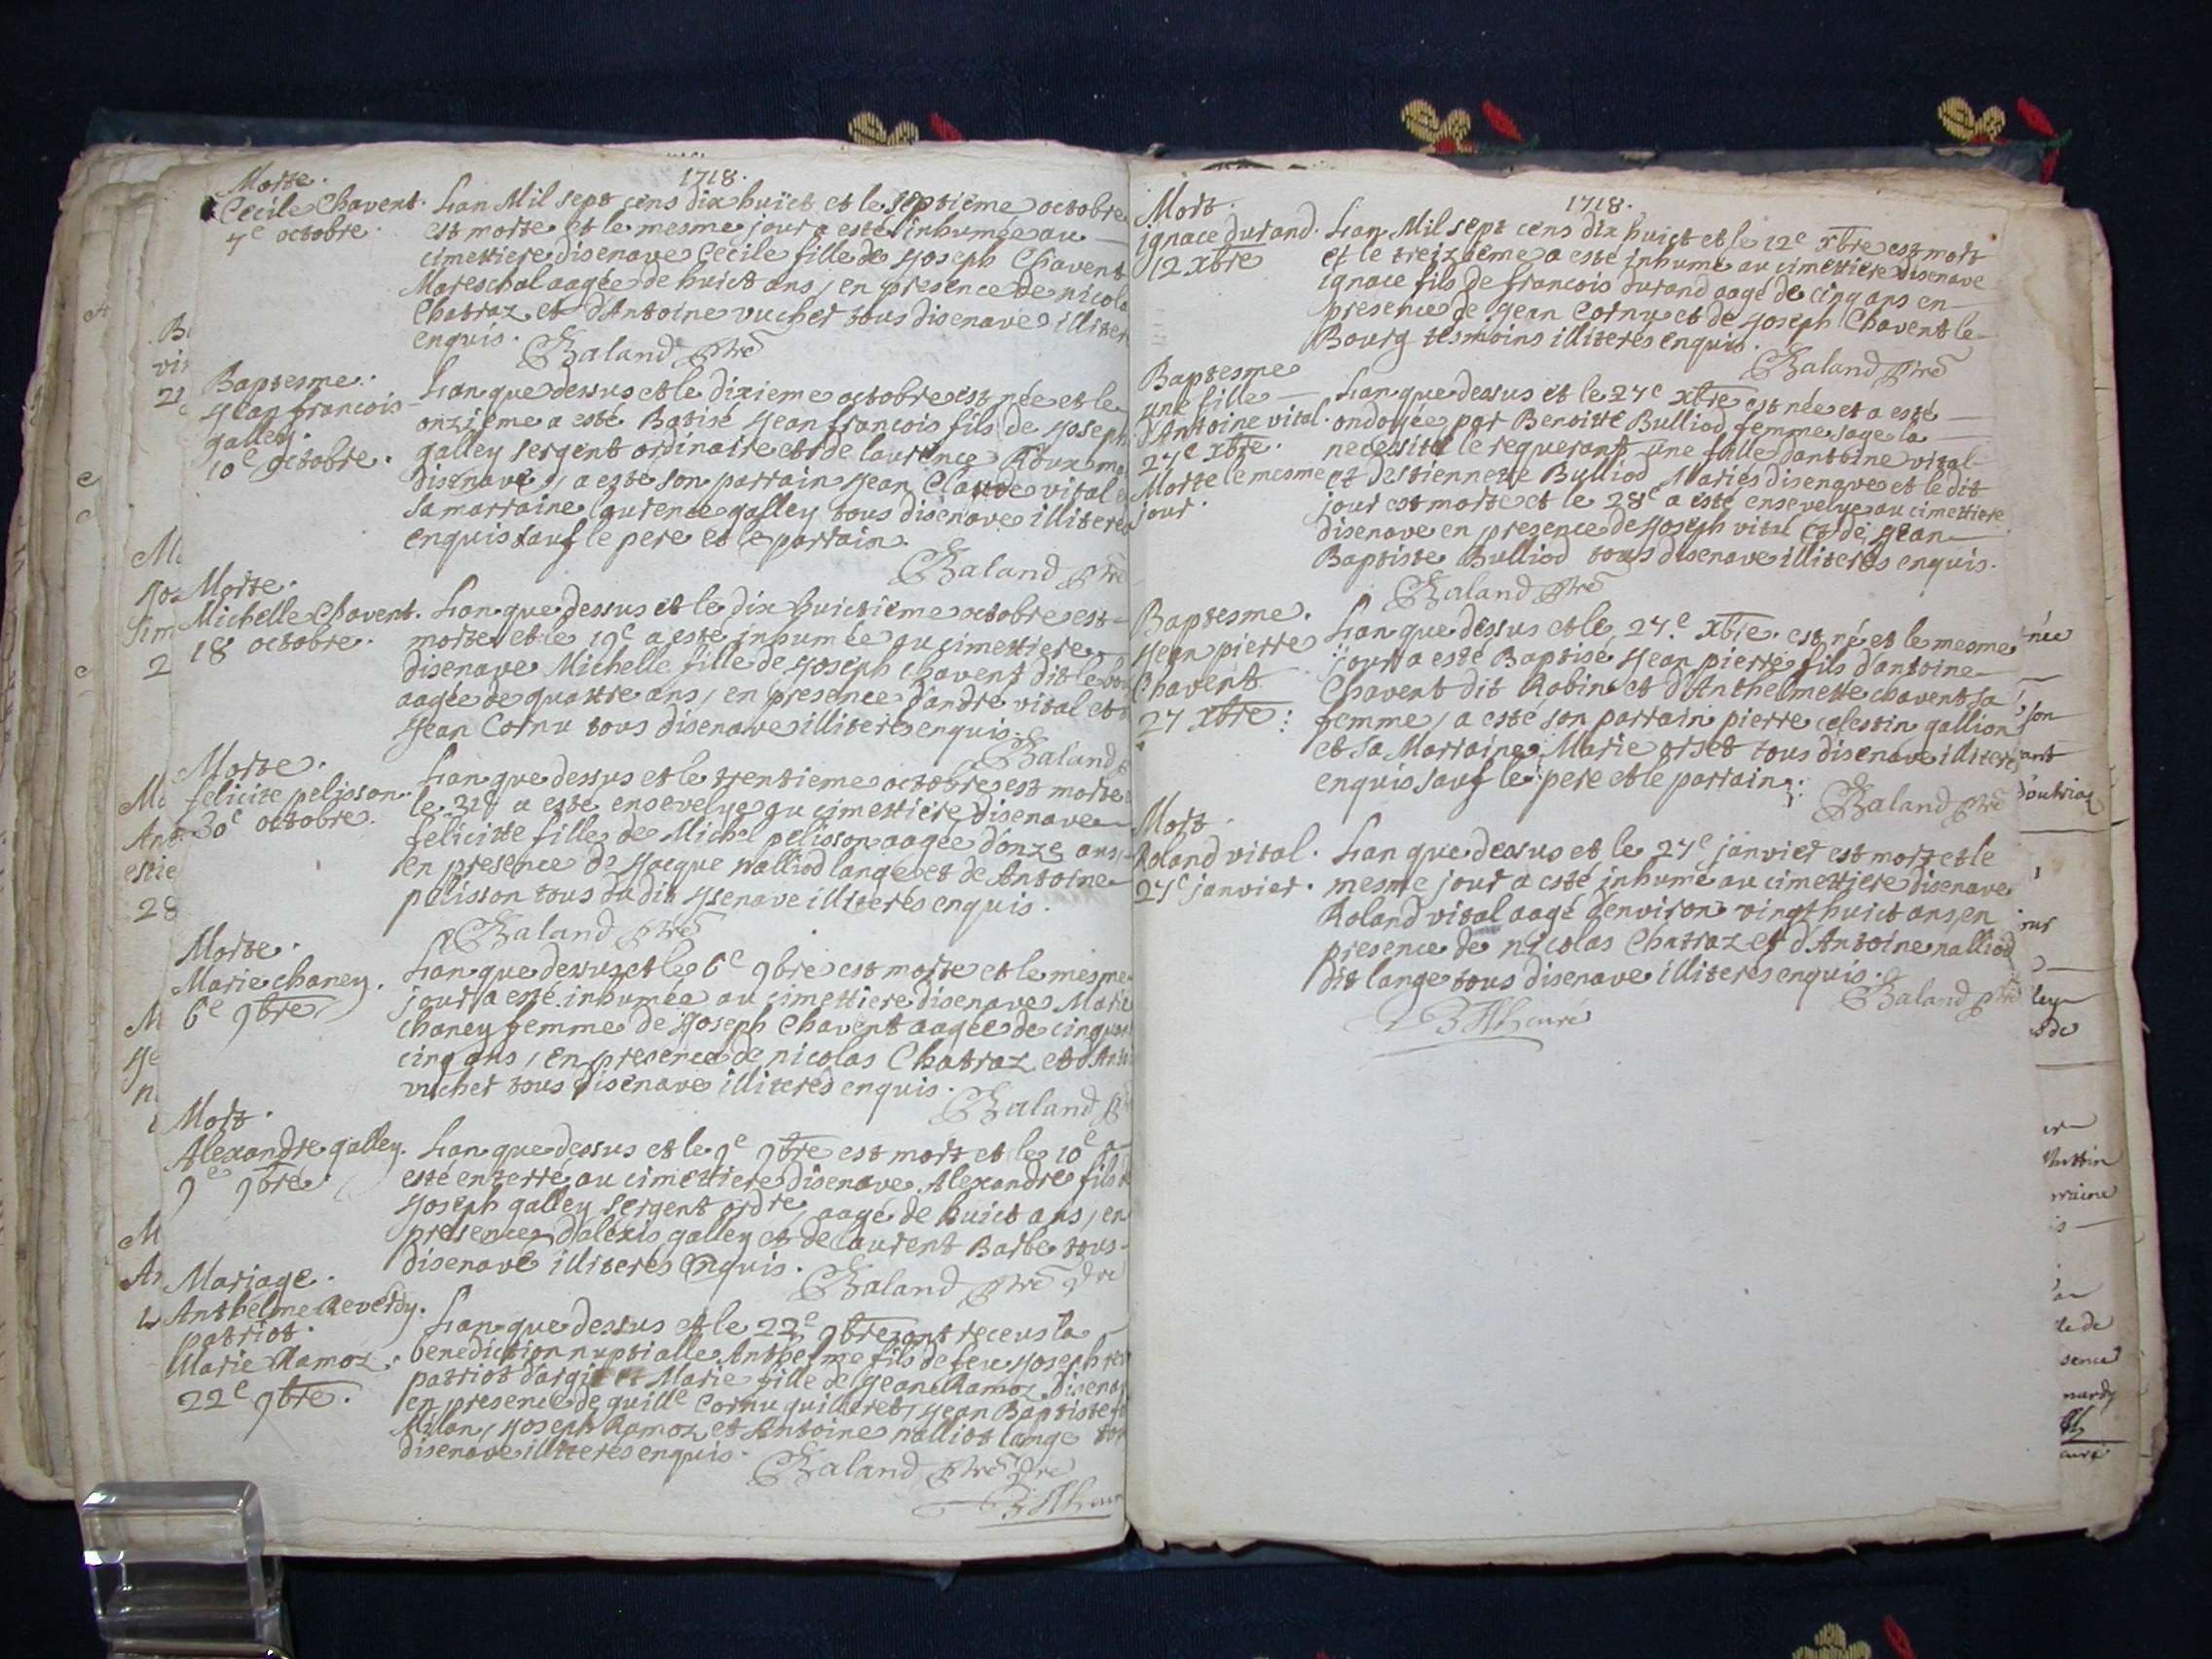 1718.
Morte.
Cecile Chavent.
7e octobre.
Lan Mil sept cens dix huict et le septième octobre
est morte et le mesme jour a esté inhumée au
cimettiere disenave Cecile fille de Joseph Chavent
Mareschal aagée de huict ans, en presence de nicola
Chatraz et d'Antoine vucher tous disenave illiter
enquis. Baland ptre
Baptesme.
Jean francois
galley.
10e octobre.
Lan que dessus et le dixieme octobre est née et le
onzième a esté Batisé Jean francois fils de Joseph
galley sergent ordinaire et de laurence Roux ma
disenave, a esté son parrain Jean Claude vital e
sa marraine laurence galley tous disenave illiterés
enquis sauf le pere et le parrain.
Baland ptre
Morte.
Michelle Chavent.
18 octobre.
Lan que dessus et le dix huictième octobre est
morte et le 19e a esté inhumée au cimettiere
disenave Michelle fille de Joseph Chavent dit le bou
aagée de quattre ans, en presence d'andre vital et
Jean Cornu tous disenave illiterés enquis.
Baland
Morte.
felicite pelisson.
30e octobre.
Lan que dessus et le trentieme octobre est morte
le 31e a esté ensevelye au cimettiere disenave
felicitte fille de Michel pelisson aagée d'onze ans,
en presence de Jacque nalliod lange et de Antoine
pelisson tous du dit Isenave illiterés enquis.
Baland ptre
Morte.
Marie chaney.
6e 9bre
Lan que dessus et le 6e 9bre est morte et le mesme
jour a esté inhumée au cimettiere disenave Marie
chaney femme de Joseph Chavent aagée de cinquan
cinq ans, en presence de nicolas Chatraz et d'Antoi
vucher tous disenave illiterés enquis.
Baland
Mort.
Alexandre galley.
9e 9bre.
Lan que dessus et le 9e 9bre est mort et le 10e a
esté enterré au cimettiere disenave Alexandre fils
Joseph galley sergent ordre aagé de huict ans, en
presence d'alexis galley et de laurent Barbe tous
disenave illiterés enquis.
Baland ptre
Mariage.
Anthelme Reverdy.
patriot.
Marie Ramoz.
22e 9bre.
Lan que dessus et le 22e 9bre ont receus la
benediction nuptialle Anthelme fils de feu Joseph rev
patriot dargit et Marie fille de Jean Ramoz disenave
en presence de guille Cornu guilleret, Jean Baptiste
Millon, Joseph Ramoz et Antoine nalliot lange
disenave illiterés enquis.
Baland ptre
1718.
Mort.
ignace durand.
12 xbre
Lan Mil sept cens dix huict et le 12e xbre est mort
et le treizième a esté inhumé au cimettiere disenave
ignace fils de francois durand aagé de cinq ans en
presence de Jean Cornu et de Joseph Chavent le
Bourg tesmoins illiterés enquis.
Baland ptre
Baptesme
une fille
d'Antoine vital.
27e xbre.
Morte le mesme
jour.
Lan que dessus et le 27e xbre est née et a esté
ondoyée par Benoitte Bulliod femme sage la
necessité le requerant une fille dantoine vital
et destiennette Bulliod Mariés disenave et le dit
jour est morte et le 28e a esté ensevelye au cimettiere
disenave en presence de Joseph vital et de Jean
Baptiste Bulliod tous disenave illiterés enquis.
Baland ptre
Baptesme.
Jean pierre
Chavent
27 xbre.
Lan que dessus et le 27e xbre. est né et le mesme
jour a esté Baptisé Jean pierre fils d'antoine
Chavent dit Robin et d'Anthelmette chavent sa
femme, a esté son parrain pierre celestin gallion
et sa Marraine Marie orset tous disenave illiterés
enquis sauf le pere et le parrain.
Baland ptre
Mort.
Roland vital.
27e janvier.
Lan que dessus et le 27e janvier est mort et le
mesme jour a esté inhumé au cimettiere disenave
Roland vital aagé denviron vingt huict ans, en
presence de nicolas Chatraz et d'Antoine nalliod
dit lange tous disenave illiterés enquis.
Baland ptre
curé